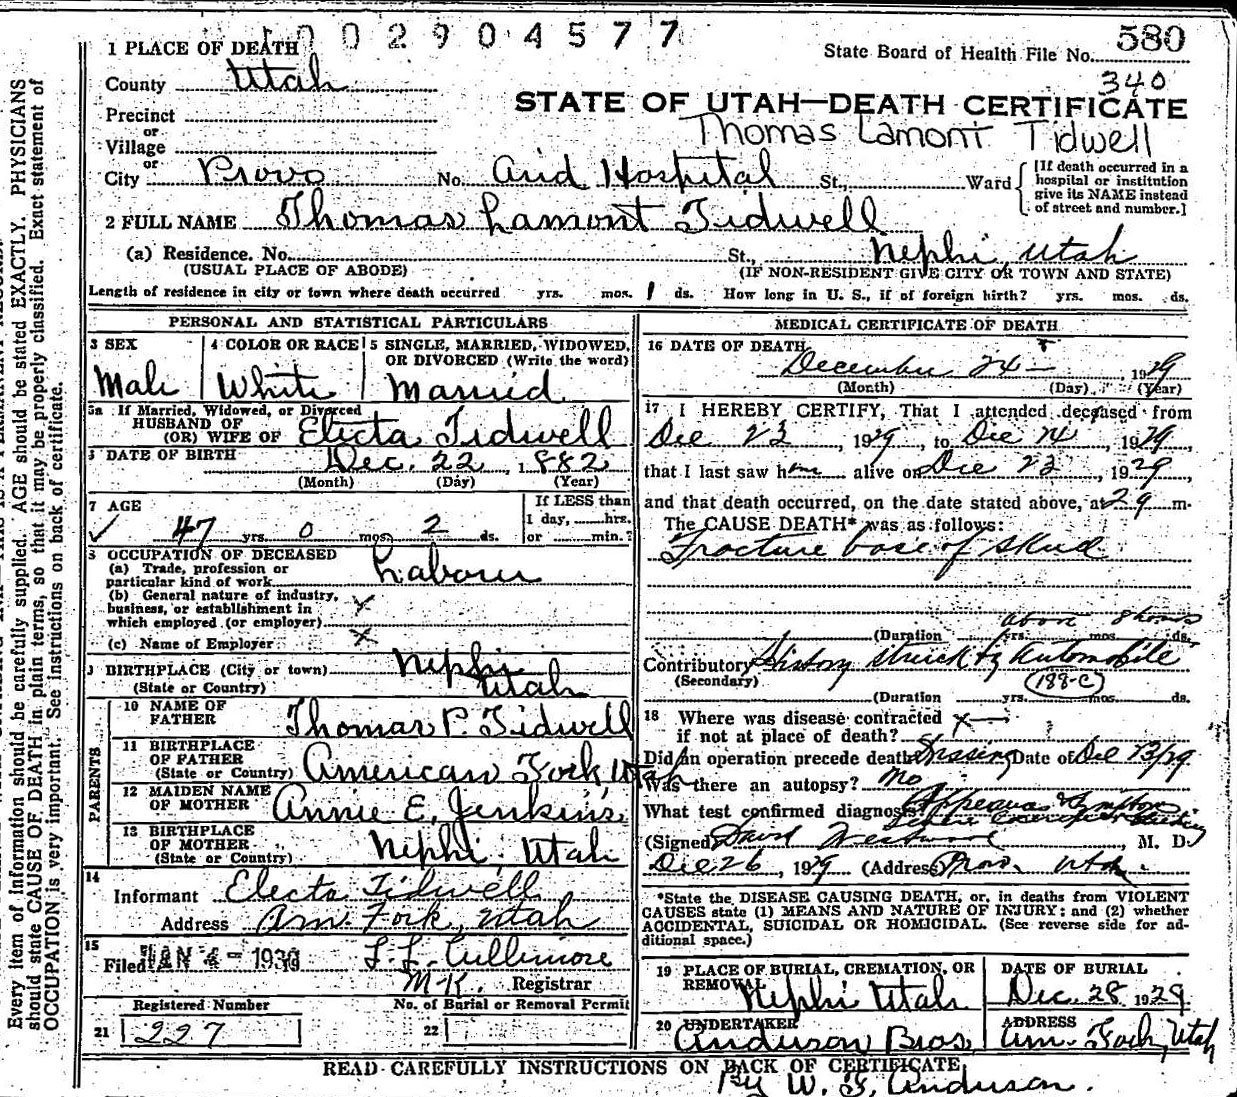 002904577
580
1 PLACE OF DEATH
State Board of Health File No.
County Utah
340
STATE OF UTAH—DEATH CERTIFICATE
Precinct
Thomas Lamont Tidwell
or
Village
or
City Provo No. Aird Hospital St., Ward
[If death occurred in a hospital or institution give its NAME instead of street and number.]
2 FULL NAME Thomas Lamont Tidwell
(a) Residence. No. St., Nephi, Utah
(USUAL PLACE OF ABODE) (IF NON-RESIDENT GIVE CITY OR TOWN AND STATE)
Length of residence in city or town where death occurred yrs. mos. 1 ds. How long in U. S., if of foreign birth? yrs. mos. ds.
PERSONAL AND STATISTICAL PARTICULARS
3 SEX 4 COLOR OR RACE 5 SINGLE, MARRIED, WIDOWED, OR DIVORCED (Write the word)
Male White Married
5a If Married, Widowed, or Divorced
HUSBAND OF
(OR) WIFE OF Electa Tidwell
DATE OF BIRTH Dec. 22, 1882
(Month) (Day) (Year)
7 AGE If LESS than
47 yrs. 0 mos. 2 ds. 1 day, hrs. or min.?
OCCUPATION OF DECEASED
(a) Trade, profession or
particular kind of work Laborer
(b) General nature of industry,
business, or establishment in
which employed (or employer) x
(c) Name of Employer x
BIRTHPLACE (City or town) Nephi
(State or Country) Utah
PARENTS
10 NAME OF
FATHER Thomas P. Tidwell
11 BIRTHPLACE
OF FATHER
(State or Country) American Fork Utah
12 MAIDEN NAME
OF MOTHER Annie E. Jenkins
13 BIRTHPLACE
OF MOTHER
(State or Country) Nephi, Utah
14
Informant Electa Tidwell
Address Am. Fork, Utah
15
Filed JAN 4 - 1930 L. L. Cullimore
M.K. Registrar
Registered Number No. of Burial or Removal Permit
21 227 22
MEDICAL CERTIFICATE OF DEATH
16 DATE OF DEATH
December 24 1929
(Month) (Day) (Year)
17 I HEREBY CERTIFY, That I attended deceased from
Dec 23 1929, to Dec 24, 1929
that I last saw him alive on Dec 23, 1929
and that death occurred, on the date stated above, at 2 a m.
The CAUSE DEATH* was as follows:
Fracture base of skull
above 8 hours
(Duration yrs. mos. ds.
Contributory History struck by Automobile
(Secondary) 188-C
(Duration yrs. mos. ds.
18 Where was disease contracted x
if not at place of death? ?
Did an operation precede death? Dressing Date of Dec 23/29
Was there an autopsy? No
What test confirmed diagnosis? Appearance & Symptoms
(Signed) David Westwood, M. D.
Dec 26, 1929 (Address) Provo, Utah.
*State the DISEASE CAUSING DEATH, or, in deaths from VIOLENT
CAUSES state (1) MEANS AND NATURE OF INJURY; and (2) whether
ACCIDENTAL, SUICIDAL OR HOMICIDAL. (See reverse side for ad-
ditional space.)
19 PLACE OF BURIAL, CREMATION, OR REMOVAL DATE OF BURIAL
Nephi Utah Dec. 28 1929
20 UNDERTAKER ADDRESS
Anderson Bros. Am. Fork, Utah
READ CAREFULLY INSTRUCTIONS ON BACK OF CERTIFICATE
By W. F. Anderson.
Every item of information should be carefully supplied. AGE should be stated EXACTLY. PHYSICIANS
should state CAUSE OF DEATH in plain terms, so that it may be properly classified. Exact statement of
OCCUPATION is very important. See instructions on back of certificate.